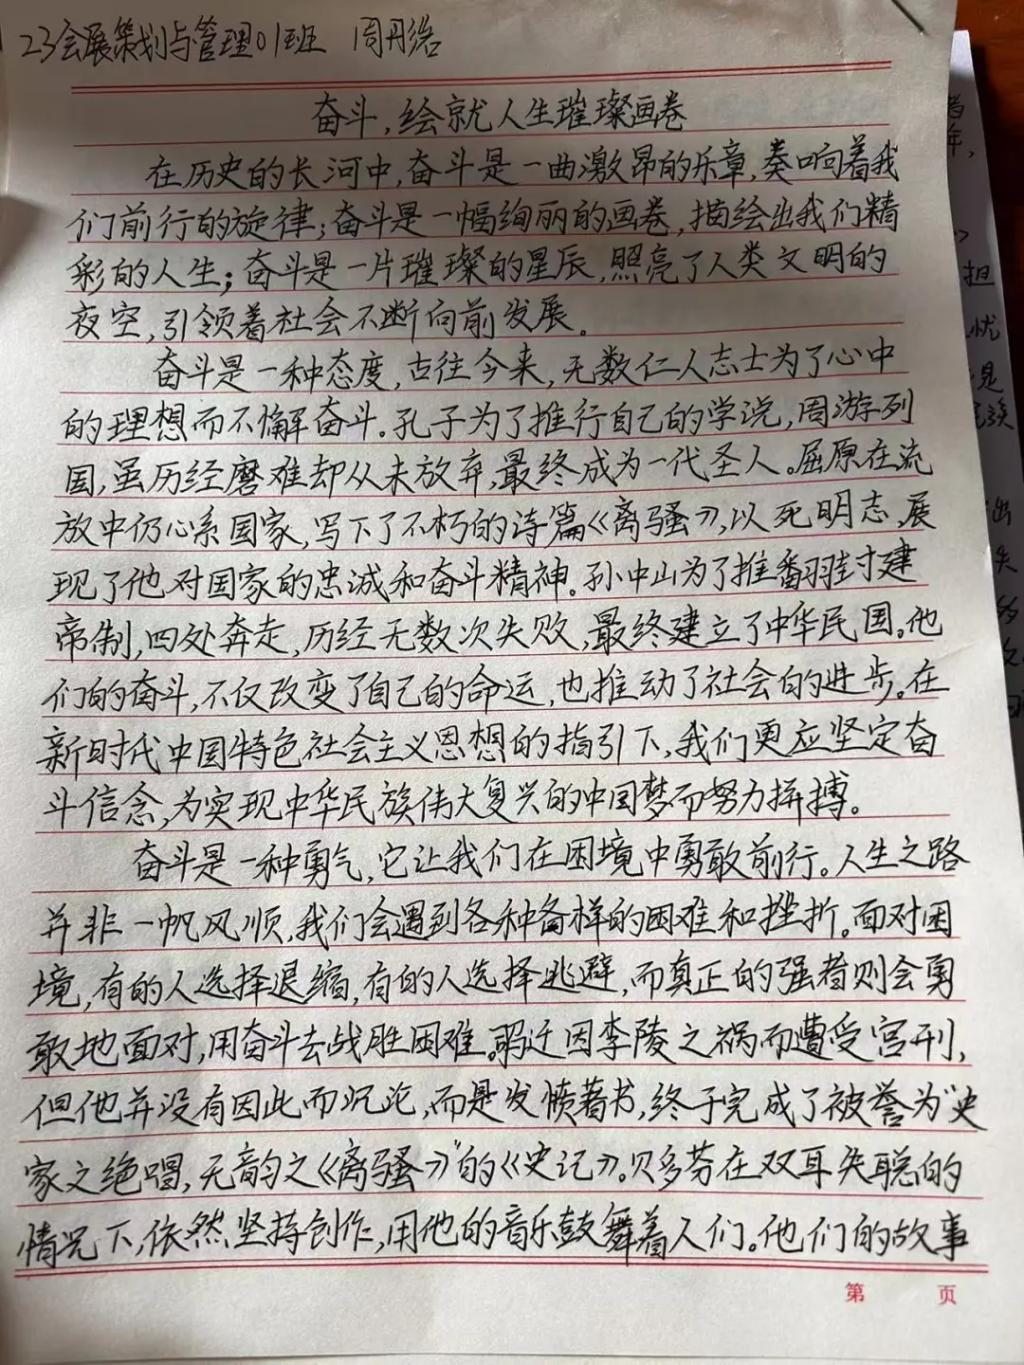 23会展策划与管理01班 周丹
奋斗，绘就人生璀璨画卷
在历史的长河中，奋斗是一曲激昂的乐章，奏响着我
们前行的旋律；奋斗是一幅绚丽的画卷，描绘出我们精
彩的人生；奋斗是一片璀璨的星辰，照亮了人类文明的
夜空，引领着社会不断向前发展。
奋斗是一种态度，古往今来，无数仁人志士为了心中
的理想而不懈奋斗。孔子为了推行自己的学说，周游列
国，虽历经磨难却从未放弃，最终成为一代圣人。屈原在流
放中仍心系国家，写下了不朽的诗篇《离骚》，以死明志，展
现了他对国家的忠诚和奋斗精神。孙中山为了推翻封建
帝制，四处奔走，历经无数次失败，最终建立了中华民国。他
们的奋斗，不仅改变了自己的命运，也推动了社会的进步。在
新时代中国特色社会主义思想的指引下，我们更应坚定奋
斗信念，为实现中华民族伟大复兴的中国梦而努力拼搏。
奋斗是一种勇气，它让我们在困境中勇敢前行。人生之路
并非一帆风顺，我们会遇到各种各样的困难和挫折。面对困
境，有的人选择退缩，有的人选择逃避，而真正的强者则会勇
敢地面对，用奋斗去战胜困难。迁因李陵之祸而遭受宫刑，
但他并没有因此而沉沦，而是发愤著书，终于完成了被誉为“史
家之绝唱，无韵之《离骚》”的《史记》。贝多芬在双耳失聪的
情况下，依然坚持创作，用他的音乐鼓舞着人们。他们的故事
第 页
担
忧
是
出
失